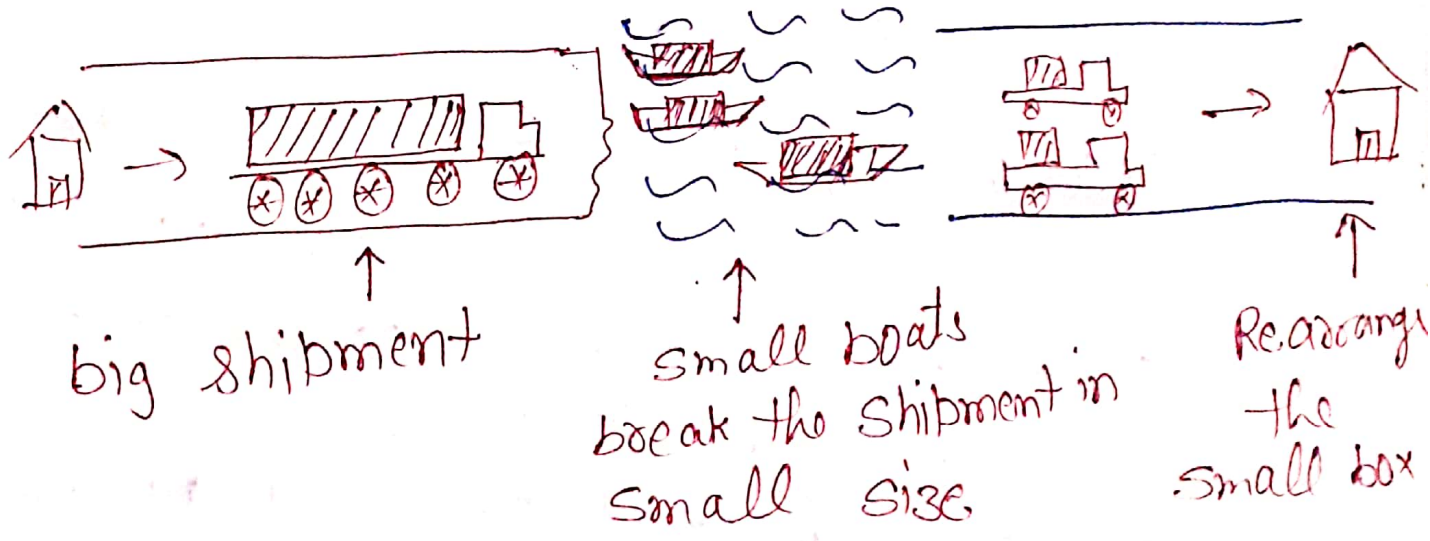 big shipment
small boats
break the shipment in
small size
Rearrange
the
small box